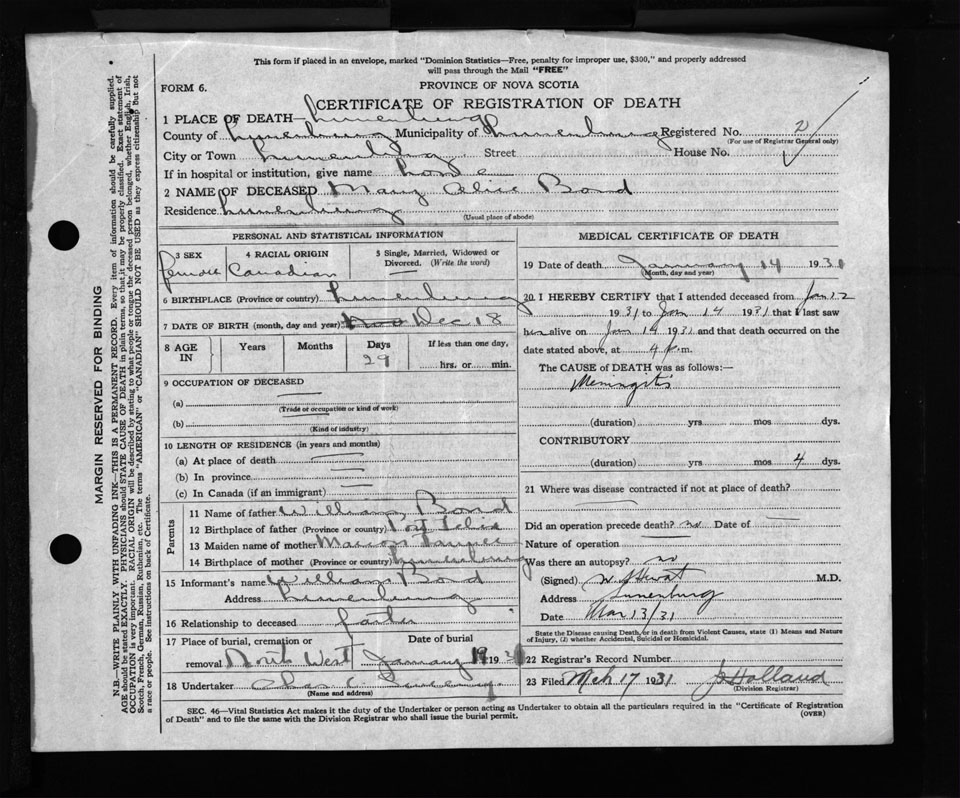 This form if placed in an envelope, marked "Dominion Statistics—Free, penalty for improper use, $300," and properly addressed
will pass through the Mail "FREE"
FORM 6.
PROVINCE OF NOVA SCOTIA
CERTIFICATE OF REGISTRATION OF DEATH
1 PLACE OF DEATH Lunenburg
County of Lunenburg Municipality of Lunenburg Registered No. 2
(For use of Registrar General only)
City or Town Lunenburg Street House No.
If in hospital or institution, give name home
2 NAME OF DECEASED Mary Alice Bond
Residence Lunenburg
(Usual place of abode)
PERSONAL AND STATISTICAL INFORMATION
3 SEX 4 RACIAL ORIGIN 5 Single, Married, Widowed or
Divorced. (Write the word)
female Canadian —
6 BIRTHPLACE (Province or country) Lunenburg
7 DATE OF BIRTH (month, day and year) Dec 18
8 AGE IN Years Months Days If less than one day,
29 hrs. or min.
9 OCCUPATION OF DECEASED
(a) —
(Trade or occupation or kind of work)
(b)
(Kind of industry)
10 LENGTH OF RESIDENCE (in years and months)
(a) At place of death —
(b) In province —
(c) In Canada (if an immigrant) —
Parents
11 Name of father William Bond
12 Birthplace of father (Province or country)
13 Maiden name of mother Marion
14 Birthplace of mother (Province or country) Lunenburg
15 Informant's name William Bond
Address Lunenburg
16 Relationship to deceased father
17 Place of burial, cremation or Date of burial
removal North West January 19 193
18 Undertaker Chas
(Name and address)
MEDICAL CERTIFICATE OF DEATH
19 Date of death January 14 1931
(Month, day and year)
20 I HEREBY CERTIFY that I attended deceased from Jan 12
1931 to Jan 14 1931 that I last saw
her alive on Jan 14 1931 and that death occurred on
date stated above, at 4 p.m.
The CAUSE of DEATH was as follows:—
Meningitis
(duration) yrs mos dys.
CONTRIBUTORY
(duration) yrs mos 4 dys.
21 Where was disease contracted if not at place of death?
—
Did an operation precede death? no Date of —
Nature of operation —
Was there an autopsy? no
(Signed) M.D.
Address Lunenburg
Date Mar 13/31
State the Disease causing Death, or in death from Violent Causes, state (1) Means and Nature
of Injury, (2) whether Accidental, Suicidal or Homicidal.
22 Registrar's Record Number
23 Filed Mch 17 1931 Holland
(Division Registrar)
SEC. 46—Vital Statistics Act makes it the duty of the Undertaker or person acting as Undertaker to obtain all the particulars required in the "Certificate of Registration
of Death" and to file the same with the Division Registrar who shall issue the burial permit.
(OVER)
MARGIN RESERVED FOR BINDING
N.B.—WRITE PLAINLY WITH UNFADING INK—THIS IS A PERMANENT RECORD. Every item of information should be carefully supplied.
AGE should be stated EXACTLY. PHYSICIANS should STATE CAUSE OF DEATH in plain terms, so that it may be properly classified. Exact statement of
OCCUPATION is very important. RACIAL ORIGIN will be described by stating to what people or tongue the deceased person belonged, whether English, Irish,
Scotch, French, German, Russian, Ruthenian, etc. The terms "AMERICAN" or "CANADIAN" SHOULD NOT BE USED as they express citizenship but not
a race or people. See instructions on back of Certificate.